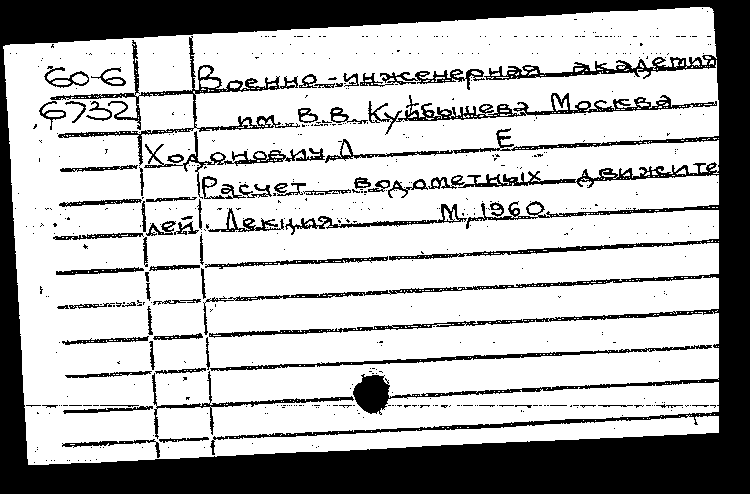 60-6 Военно-инженерная академия
6732 им. В.В. Куйбышева Москва
Ходонович, Л Е
Расчет водометных движите
лей. Лекция... М., 1960.